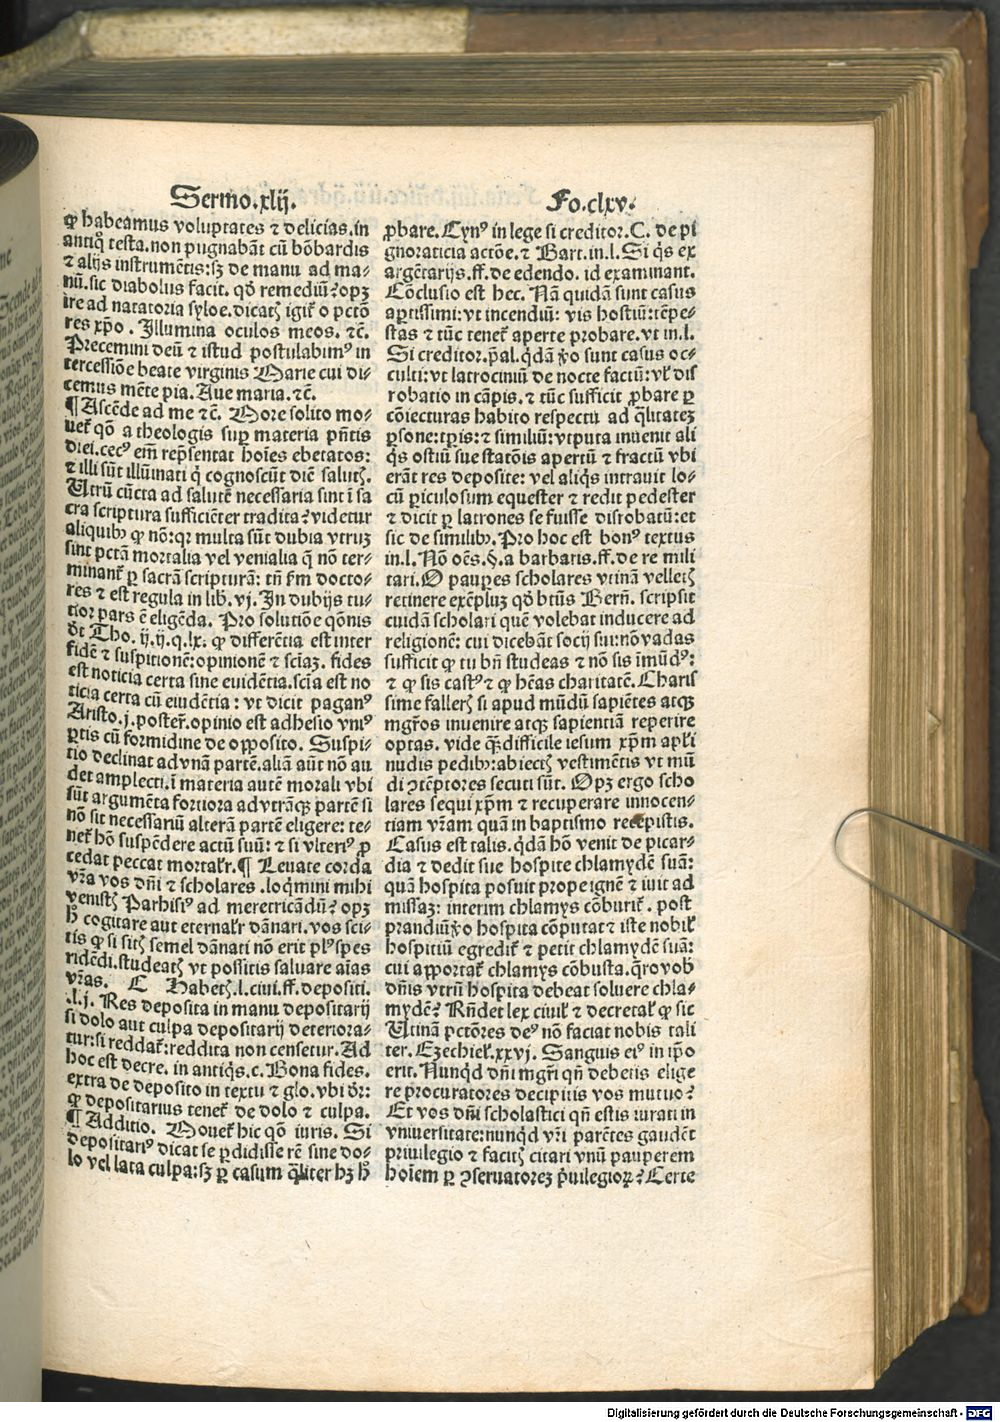 Sermo.xlij.
Fo.clxv.
ꝙ habeamus voluptates ⁊ delicias.in
antiq̃ testa.non pugnabãt cũ bõbardis
⁊ alijs instrumẽtis:sꝫ de manu ad ma-
nũ.sic diabolus facit. qõ remediũ?opꝫ
ire ad natatoria syloe.dicatꝭ igiř o pctõ
res xp̃o. Illumina oculos meos. ⁊c̃.
Precemini deũ ⁊ istud postulabimꝰ in
tercessiõe beate virginis Marie cui di-
cemus mẽte pia. Aue maria.⁊c̃.
¶ Ascẽde ad me ⁊c̃. More solito mo-
ueř qõ a theologis suꝑ materia pñtis
diei.cecꝰ em̃ rep̃sentat hoĩes ebetatos:
⁊ illi sũt illũinati q̇ cognoscũt diẽ salutꝭ.
Utrũ cũcta ad salutẽ necessaria sint ĩ sa
cra scriptura sufficiẽter tradita?videtur
aliquibꝰ ꝙ nõ:qr multa sũt dubia vtruꝫ
sint pctã mortalia vel venialia q̃ nõ ter-
minanř ꝑ sacrã scripturã: tñ ẜm docto-
res ⁊ est regula in lib.vj.In dubijs tu-
tior pars ẽ eligẽda. Pro solutiõe qõnis
õt Tho.ij.ij.q.lx. ꝙ differẽtia est inter
fidẽ ⁊ suspitionẽ:opinionẽ ⁊ sciãꝫ. fides
est noticia certa sine euidẽtia.sciã est no
ticia certa cũ euidẽtia: vt dicit paganꝰ
Aristo.j.posteř.opinio est adhesio vniꝰ
ꝑtis cũ formidine de opposito. Suspi-
tio declinat ad vnã partẽ.aliã aũt nõ au
det amplecti.ĩ materia autẽ morali vbi
sũt argumẽta fortiora ad vtrãqꝫ partẽ si
nõ sit necessariũ alterã partẽ eligere: te-
neř hõ suspẽdere actũ suũ: ⁊ si vlteriꝰ ꝓ
cedat peccat mortalr̃.¶ Leuate corda
vr̃a vos dñi ⁊ scholares.loq̃mini mihi
venistꝭ Parhisiꝰ ad meretricãdũ? opꝫ
ħ cogitare aut eternalr̃ dãnari.vos sci-
tis ꝙ si sitꝭ semel dãnati nõ erit plꝰ spes
ridẽdi.studeatꝭ vt possitis saluare aĩas
vr̃as. C Habetꝭ.l.ciui.ff.depositi.
.l.j. Res deposita in manu depositarij
si dolo aut culpa depositarij deteriora-
tur:si reddař:reddita non censetur.Ad
hoc est decre. in antiq̃s.c. Bona fides.
extra de deposito in textu ⁊ glo.vbi dr̃:
ꝙ depositarius teneř de dolo ⁊ culpa.
¶ Additio. Moueř hic qõ iuris. Si
depositariꝰ dicat se ꝑdidisse rẽ sine do-
lo vel lata culpa:sꝫ ꝑ casum q̃liter hꝫ ħ
ꝓbare. Cynꝰ in lege si creditor.C. de pi
gnoraticia actõe.⁊ Bart.in.l. Si q̇s ex
argẽtarijs.ff.de edendo. id examinant.
Cõclusio est hec. Nã quidã sunt casus
aptissimi:vt incendiũ: vis hostiũ:tẽpe-
stas ⁊ tũc teneř aperte probare.vt in.l.
Si creditor.p̃al.q̇dã ṽo sunt casus oc-
culti:vt latrociniũ de nocte factũ:vł dis
robatio in cãpis.⁊ tũc sufficit ꝓbare ꝑ
cõiecturas habito respectu ad q̃litateꝫ
ꝑsone:tꝑis:⁊ similiũ:vtputa inuenit ali
q̇s ostiũ sue statõis apertũ ⁊ fractũ vbi
erãt res deposite: vel aliq̇s intrauit lo-
cũ ꝑiculosum equester ⁊ redit pedester
⁊ dicit ꝑ latrones se fuisse disrobatũ:et
sic de similibꝰ. Pro hoc est bonꝰ textus
in.l. Nõ oẽs.§.a barbaris.ff.de re mili
tari.O pauꝑes scholares vtinã velletꝭ
retinere exẽpluꝫ qõ btũs Berñ. scripsit
cuidã scholari quẽ volebat inducere ad
religionẽ: cui dicebãt socij sui:nõ vadas
sufficit ꝙ tu bñ studeas ⁊ nõ sis ĩmũdꝰ:
⁊ ꝙ sis castꝰ ⁊ ꝙ hẽas charitatẽ.Charis
sime fallerꝭ si apud mũdũ sapiẽtes atqꝫ
mgr̃os inuenire atqꝫ sapientiã reperire
optas. vide q̃ꝫ difficile iesum xp̃m apł̃i
nudis pedibꝰ:abiectꝭ vestimẽtis vt mũ
di ꝯtẽptores secuti sũt. Opꝫ ergo scho
lares sequi xp̃m ⁊ recuperare innocen-
tiam vr̃am quã in baptismo recepistis.
Casus est talis. q̇dã hõ venit de picar-
dia ⁊ dedit sue hospite chlamydẽ suã:
quã hospita posuit prope ignẽ ⁊ iuit ad
missaꝫ: interim chlamys cõburiř. post
prandiũ ṽo hospita cõputat ⁊ iste nobił
hospitiũ egrediř ⁊ petit chlamydẽ suã:
cui apportař chlamys cõbusta.q̃ro vob̃
dñis vtrũ hospita debeat soluere chla-
mydẽ? Rñdet lex ciuił ⁊ decretał ꝙ sic
Utinã pctõres deꝰ nõ faciat nobis tali
ter. Ezechieł.xxvj. Sanguis eiꝰ in ip̃o
erit.Nunq̇d dñi mgr̃i qñ debetis elige
re procuratores decipitis vos mutuo?
Et vos dñi scholastici qñ estis iurati in
vniuersitate:nunq̇d vr̃i parẽtes gaudẽt
priuilegio ⁊ facitꝭ citari vnũ pauperem
hoĩem ꝑ ꝯseruatoreꝫ p̃uilegioꝝ? Certe
Digitalisierung gefördert durch die Deutsche Forschungsgemeinschaft - DFG